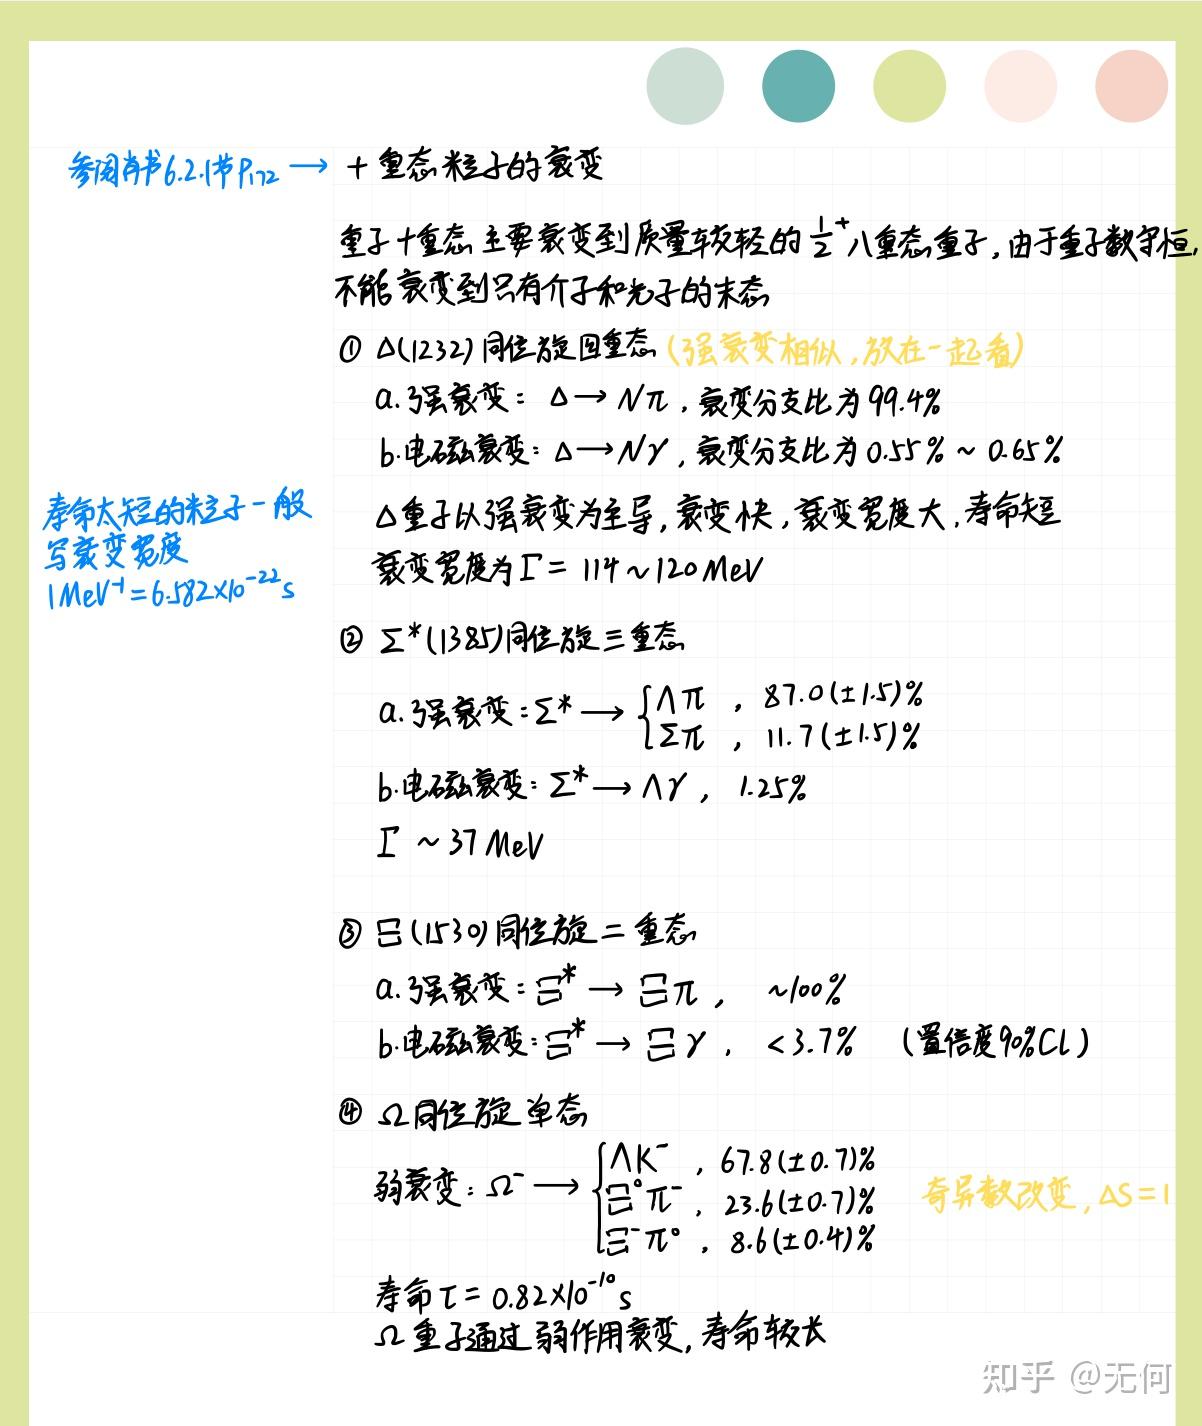 参阅肖书6.2.1节P172 → 十重态粒子的衰变
重子十重态主要衰变到质量较轻的 1/2⁺ 八重态重子,由于重子数守恒,
不能衰变到只有介子和光子的末态
① Δ(1232)同位旋四重态(强衰变相似,放在一起看)
a.强衰变: Δ→Nπ,衰变分支比为99.4%
b.电磁衰变: Δ→Nγ,衰变分支比为0.55%~0.65%
寿命太短的粒子一般
写衰变宽度
1MeV⁻¹=6.582×10⁻²²s
Δ重子以强衰变为主导,衰变快,衰变宽度大,寿命短
衰变宽度为Γ=114~120MeV
② Σ*(1385)同位旋三重态
a.强衰变:Σ*→{Λπ , 87.0(±1.5)%
Σπ , 11.7(±1.5)%
b.电磁衰变:Σ*→Λγ, 1.25%
Γ ~37MeV
③ Ξ(1530)同位旋二重态
a.强衰变:Ξ*→Ξπ, ~100%
b.电磁衰变:Ξ*→Ξγ, <3.7% (置信度90%CL)
④ Ω同位旋单态
弱衰变:Ω⁻→{ΛK⁻ , 67.8(±0.7)%
Ξ⁰π⁻ , 23.6(±0.7)%
Ξ⁻π⁰ , 8.6(±0.4)%
奇异数改变,ΔS=1
寿命τ=0.82×10⁻¹⁰s
Ω重子通过弱作用衰变,寿命较长
知乎 @无何